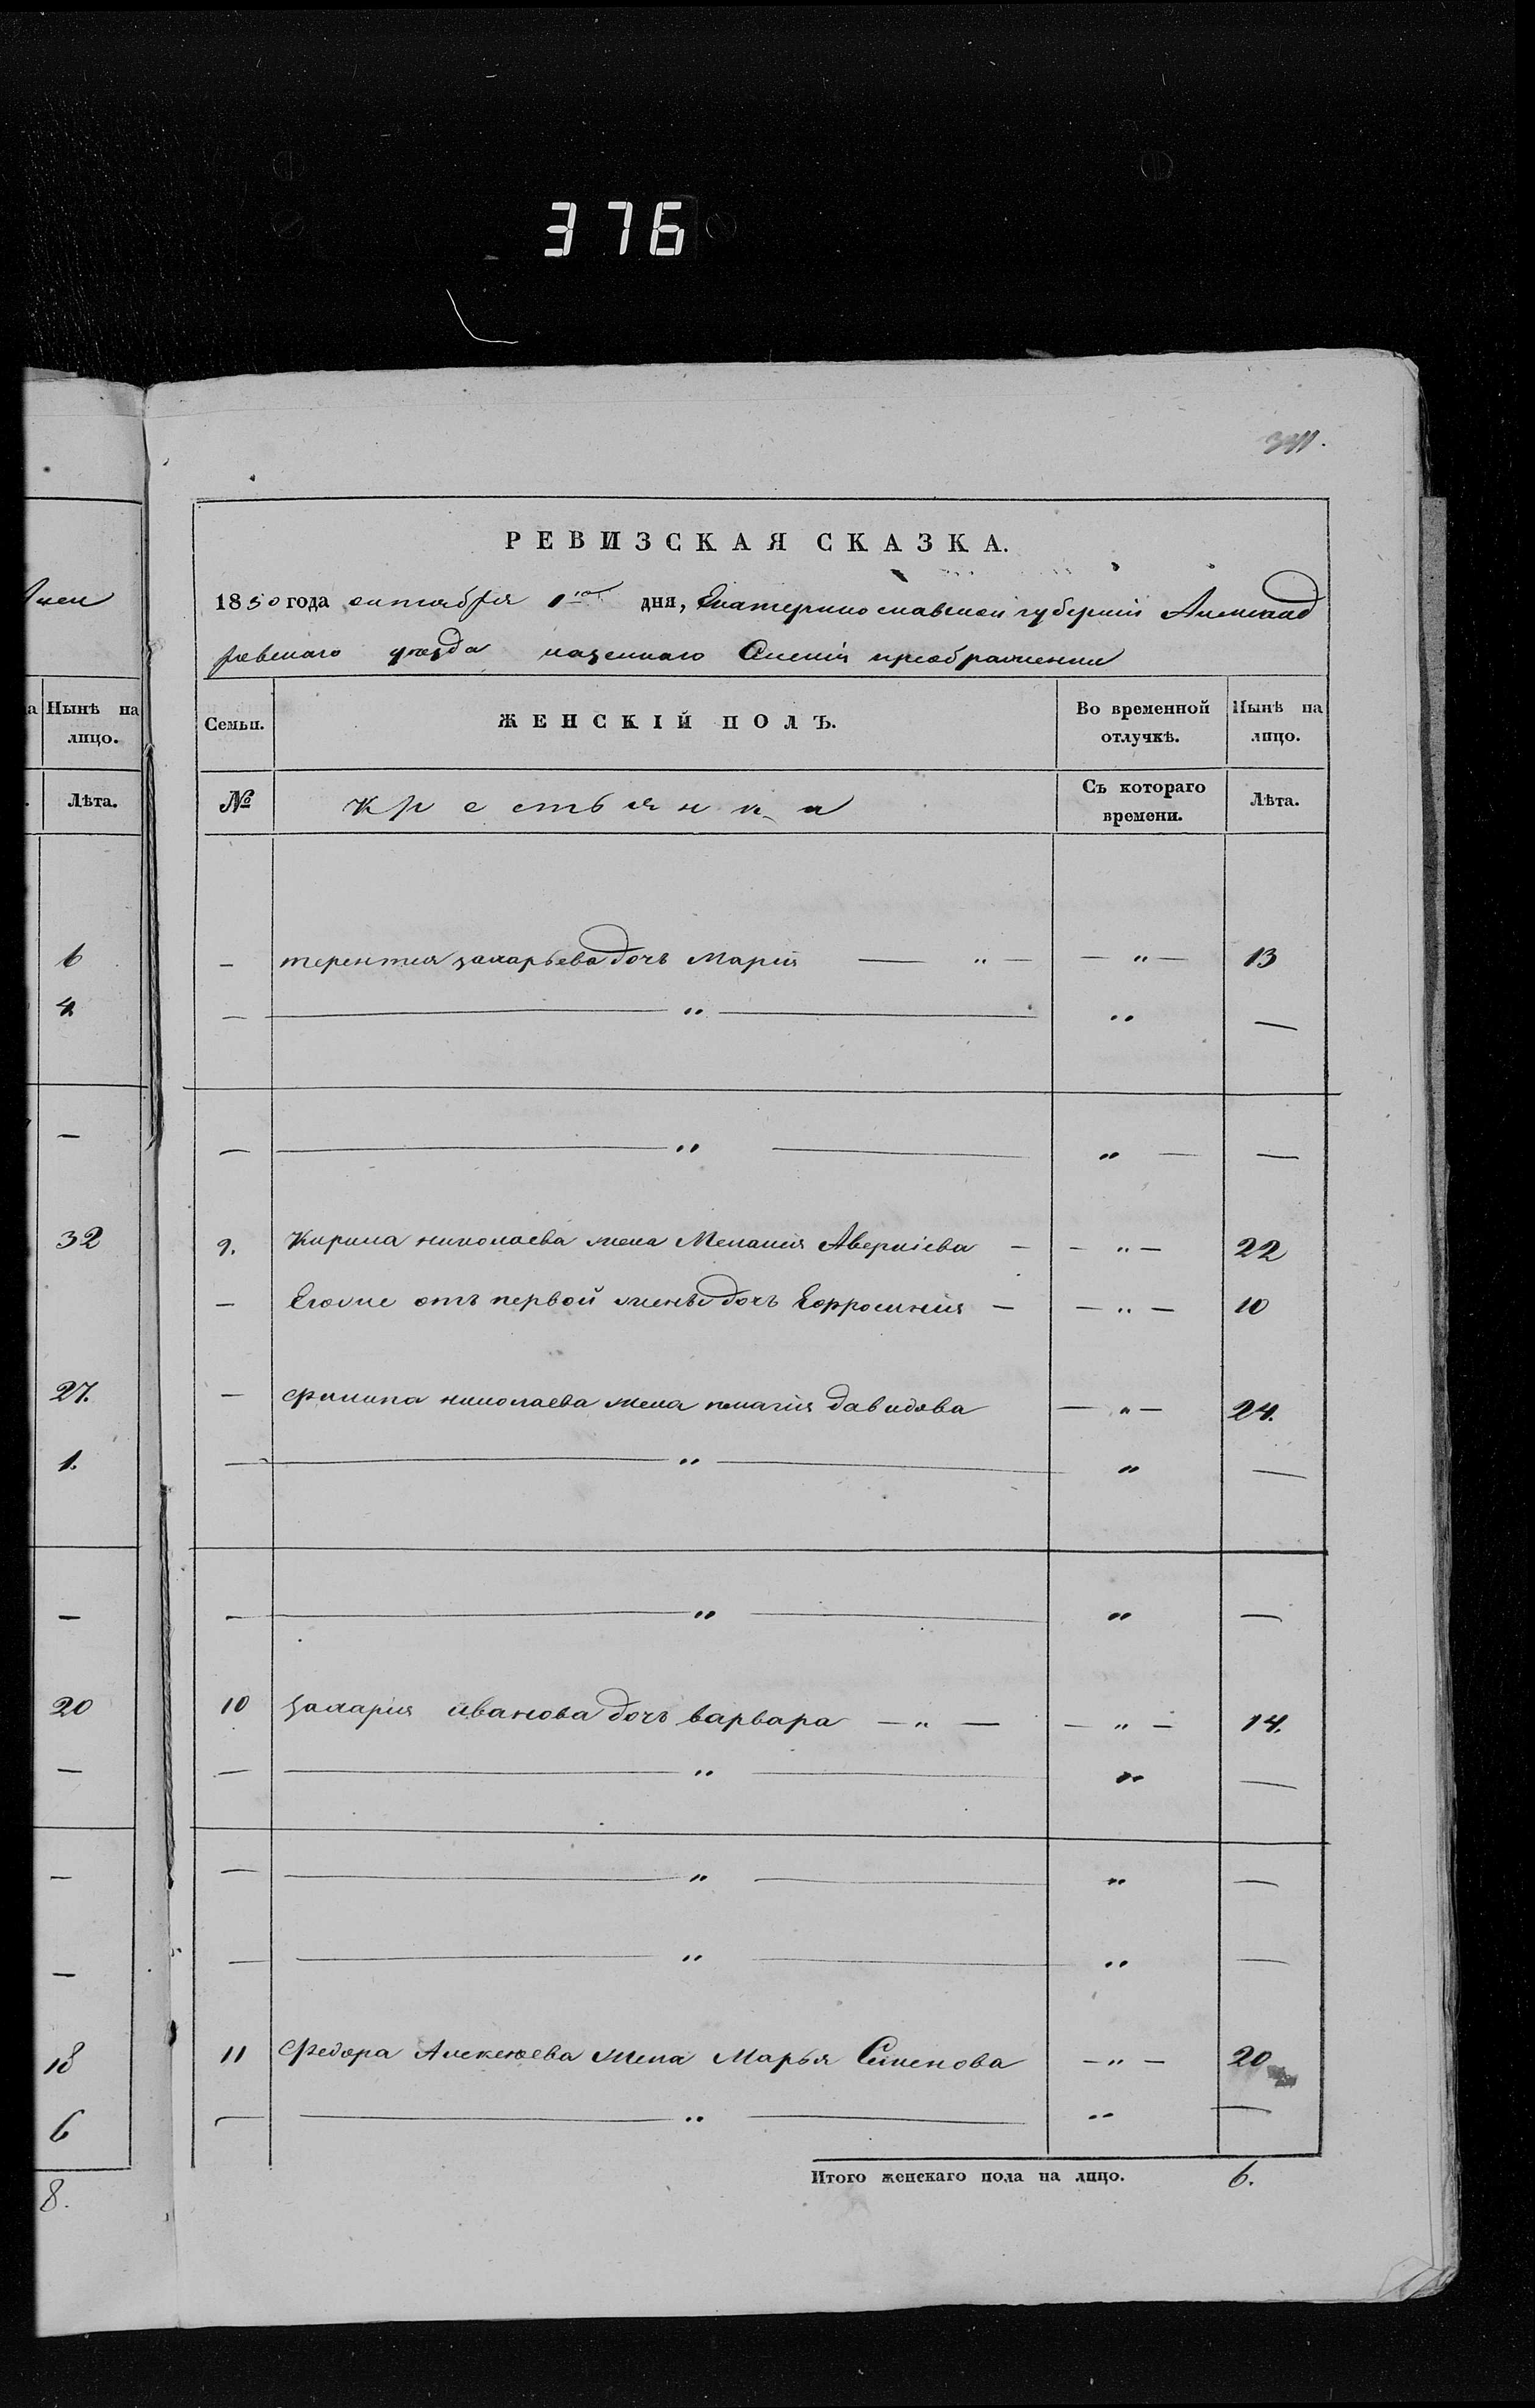 376
РЕВИЗСКАЯ СКАЗКА.
1850 года октября 1го дня, Екатеринославской губернии Александ
ровскаго уезда казеннаго Селения преображенки
Нынѣ на
лицо.
Лѣта.
6
4
—
32
27.
1.
—
20
—
—
—
18
6
8.
Семьи. ЖЕНСКІЙ ПОЛЪ. Во временной отлучкѣ. Нынѣ на лицо.
№ Крестьянка Съ котораго времени. Лѣта.
— терентия захарьева дочь Мария — " — — " — 13
— — " — " —
— — " — " — —
9. Кирила николаева жена Мелания Аверкіева — — " — 22
— Егоже отъ первой жены дочь Ефросиния — — " — 10
— филипа николаева жена пелагия давидова — " — 24.
— — " — " —
— — " — " —
10 захария иванова дочь варвара — " — — " — 14.
— — " — " —
— — " — " —
— — " — " —
11 Федора Алексеева жена Марья Семенова — " — 20
— — " — " —
Итого женскаго пола на лицо. 6.